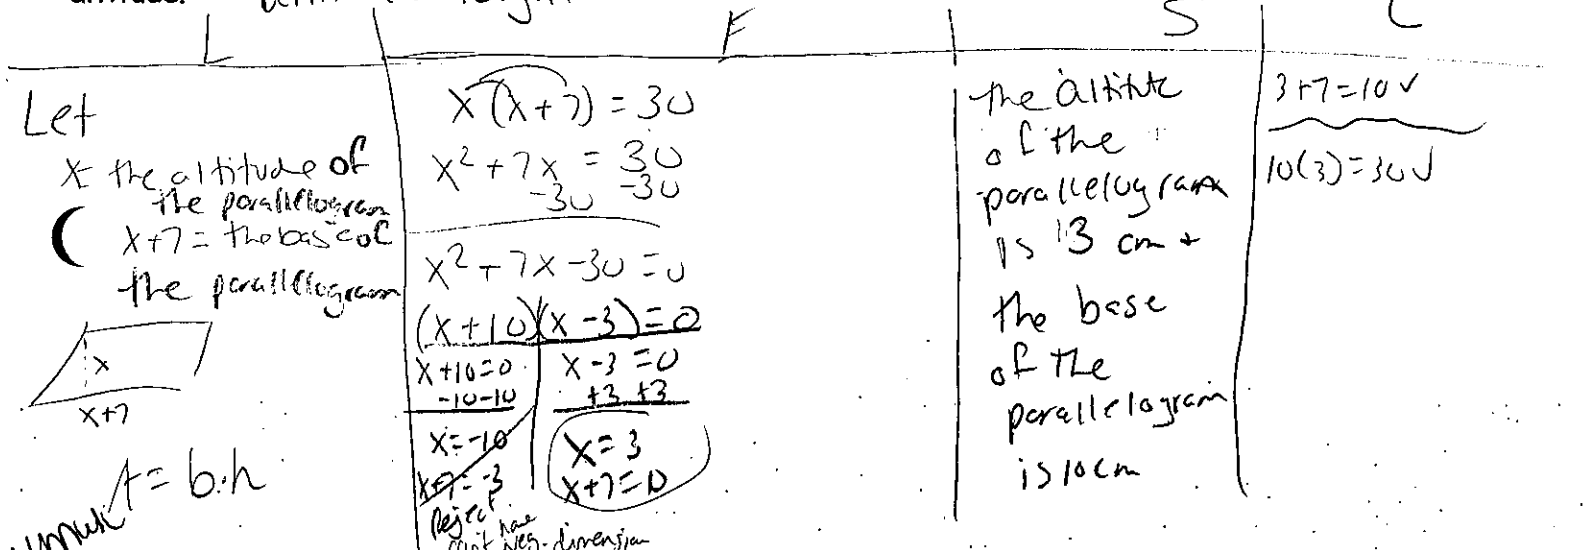 L
E
S
C
Let
x= the altitude of
the parallelogram
x+7 = the base of
the parallelogram
x
x+7
A = b·h
x(x+7) = 30
x² + 7x = 30
-30 -30
x² + 7x - 30 = 0
(x+10)(x-3) = 0
x+10=0
-10 -10
x=-10
x+7=-3
Reject
can't have
neg. dimension
x-3=0
+3 +3
x=3
x+7=10
the altitute
of the
parallelogram
is 3 cm +
the base
of the
parallelogram
is 10cm
3+7=10 ✓
10(3)=30 ✓